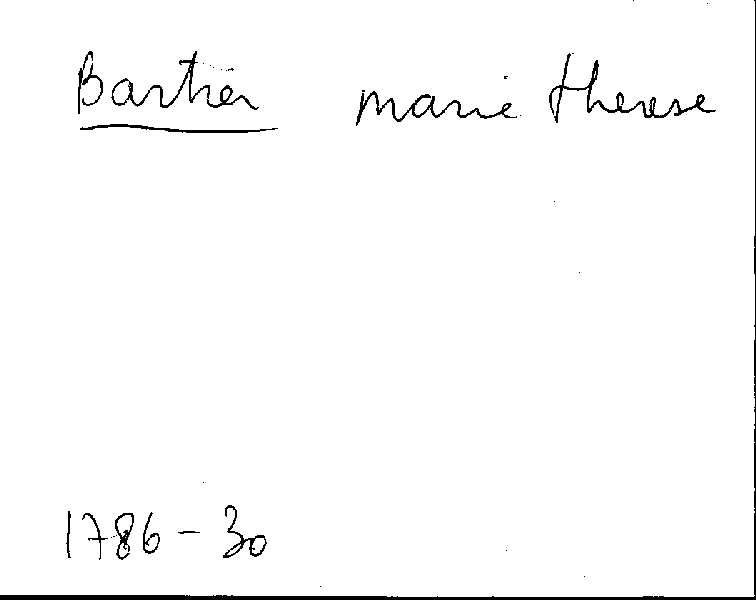 Bartier marie therese
1786-30